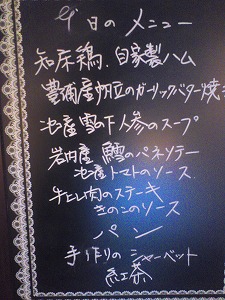 今日のメニュー
知床鶏、自家製ハム
豊浦産帆立のガーリックバター焼き
地産雪の下人参のスープ
岩内産 鱈のパネソテー
地産トマトのソース
牛ヒレ肉のステーキ
きのこのソース
パン
手作りのシャーベット
紅茶